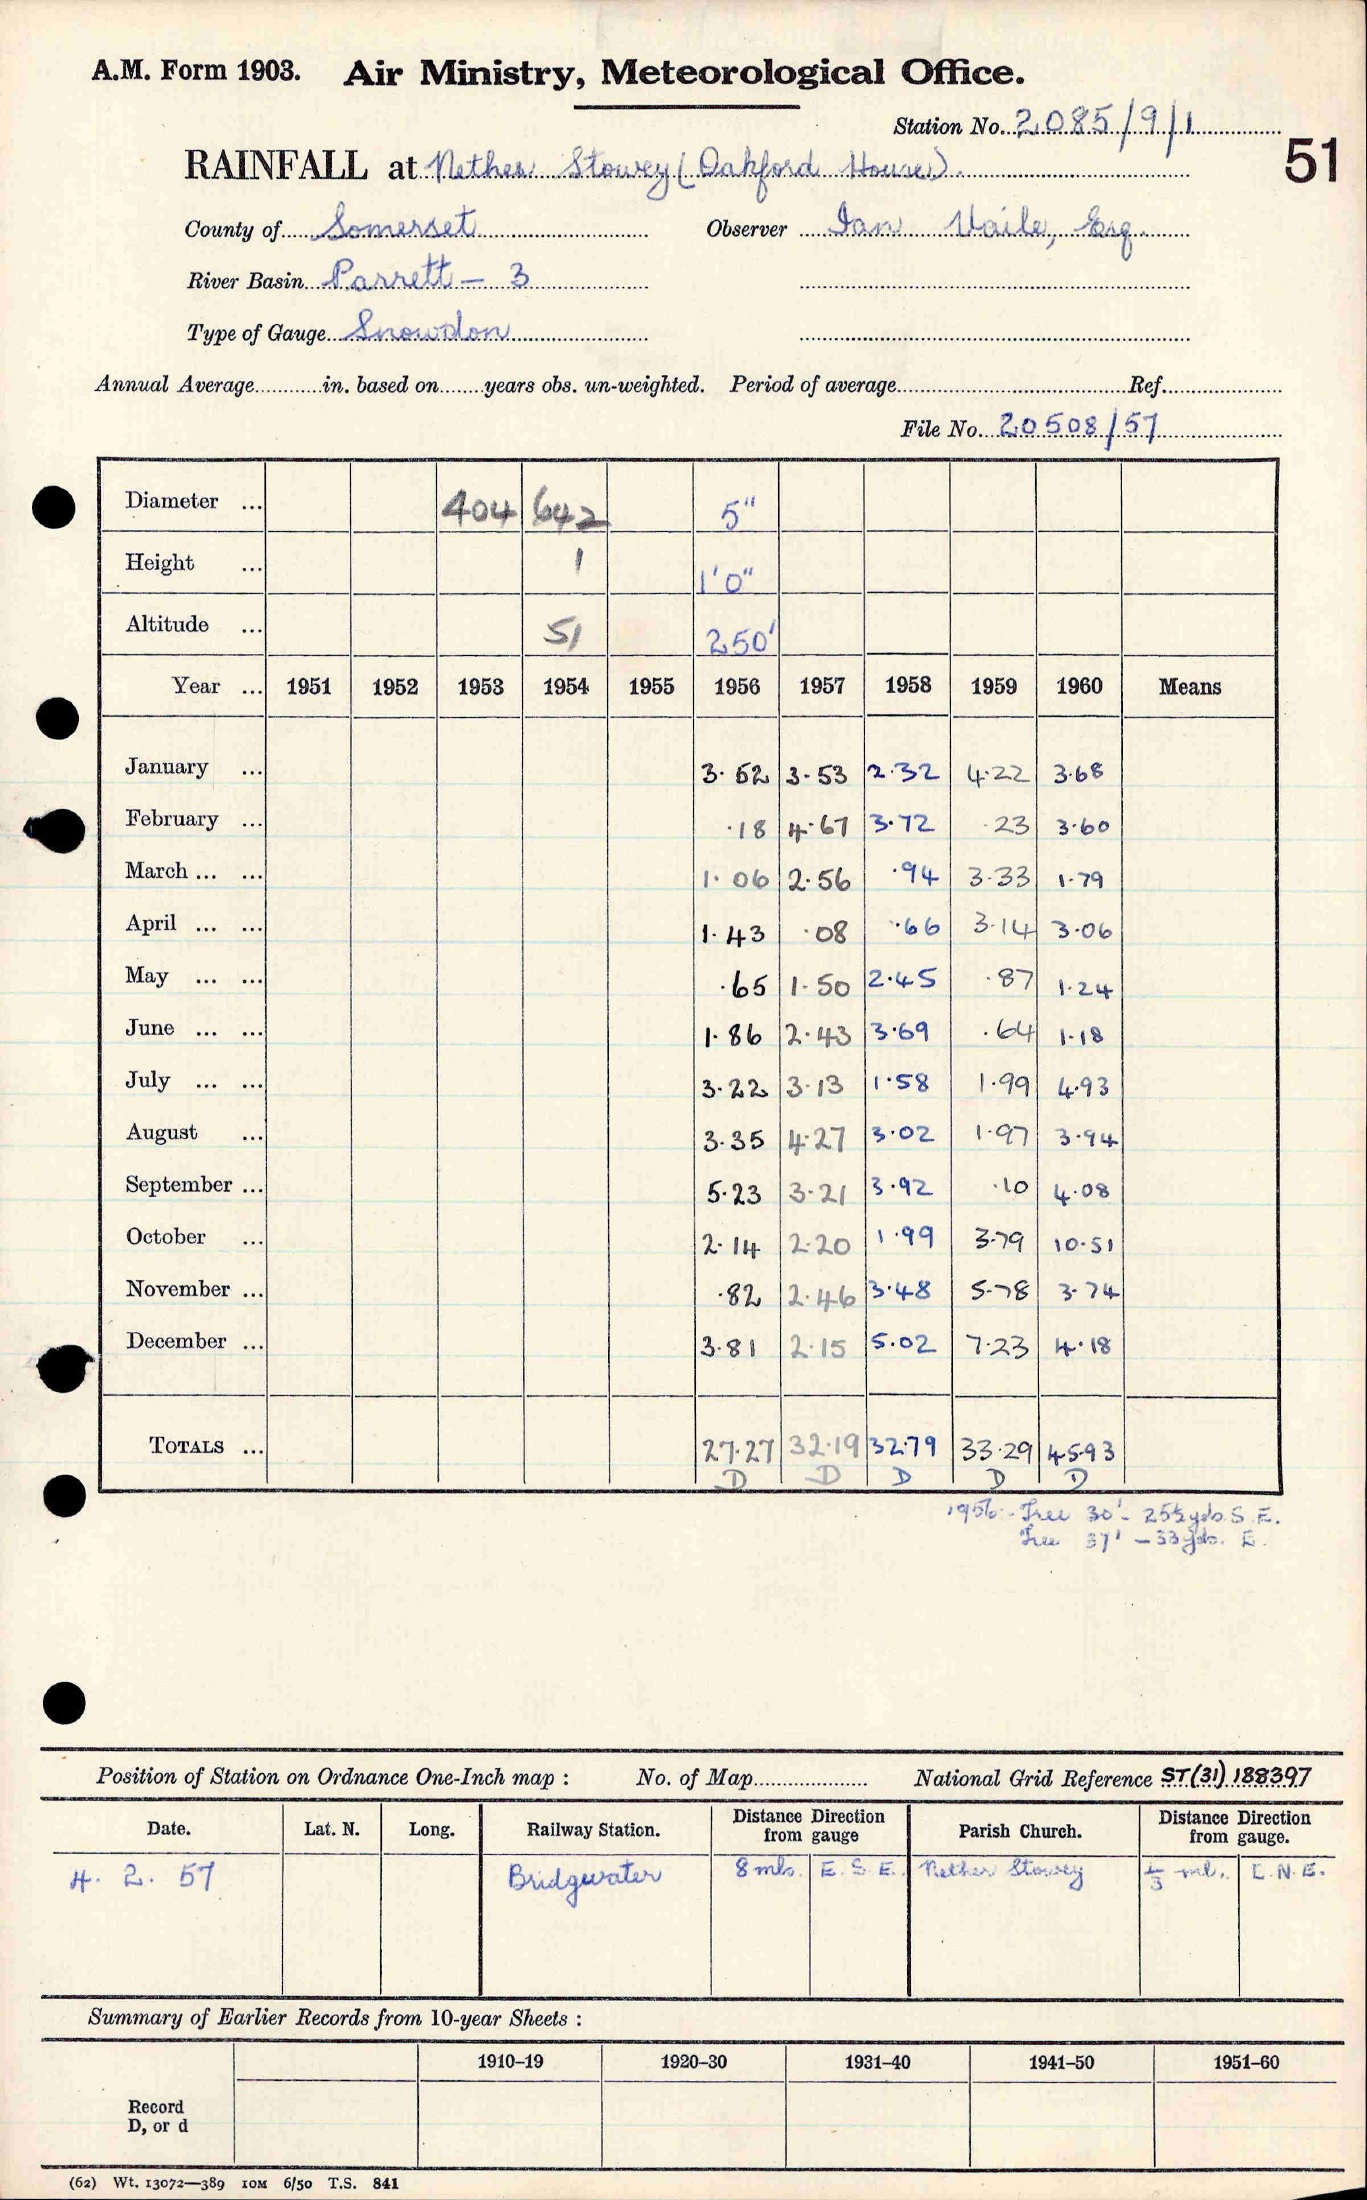 A.M. Form 1903. Air Ministry, Meteorological Office.
Station No. 2085/9/1
51
RAINFALL at Nether Stowey (Oakford House).
County of Somerset Observer Ian Vaile, Esq.
River Basin Parrett - 3
Type of Gauge Snowdon
Annual Average in. based on years obs. un-weighted. Period of average Ref.
File No. 20508/57
Diameter ... 404 642 5"
Height ... 1 1'0"
Altitude ... 51 250'
Year ... 1951 1952 1953 1954 1955 1956 1957 1958 1959 1960 Means
January ... 3.52 3.53 2.32 4.22 3.68
February ... .18 4.67 3.72 .23 3.60
March ... ... 1.06 2.56 .94 3.33 1.79
April ... ... 1.43 .08 .66 3.14 3.06
May ... ... .65 1.50 2.45 .87 1.24
June ... ... 1.86 2.43 3.69 .64 1.18
July ... ... 3.22 3.13 1.58 1.99 4.93
August ... 3.35 4.27 3.02 1.97 3.94
September ... 5.23 3.21 3.92 .10 4.08
October ... 2.14 2.20 1.99 3.79 10.51
November ... .82 2.46 3.48 5.78 3.74
December ... 3.81 2.15 5.02 7.23 4.18
TOTALS ... 27.27 32.19 32.79 33.29 45.93
D D D D D
1956 - Tree 30' - 25½ yds. S.E.
Tree 37' - 33 yds. E.
Position of Station on Ordnance One-Inch map : No. of Map National Grid Reference ST(31) 188397
Date. Lat. N. Long. Railway Station. Distance Direction from gauge Parish Church. Distance Direction from gauge.
4. 2. 57 Bridgwater 8 mls. E.S.E. Nether Stowey ⅓ ml. E.N.E.
Summary of Earlier Records from 10-year Sheets :
1910–19 1920–30 1931–40 1941–50 1951–60
Record
D, or d
(62) Wt. 13072—389 10M 6/50 T.S. 841